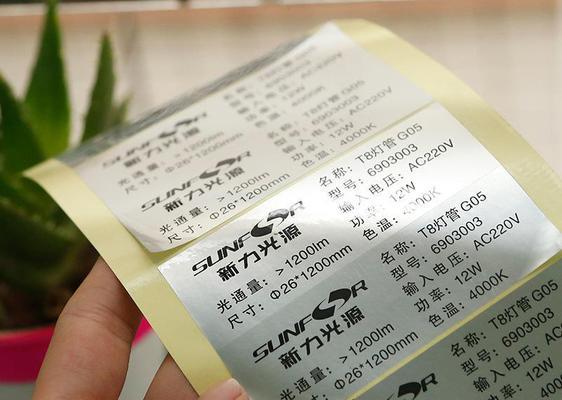 SUNFOR
光通量：>1200lm
尺寸：Φ26*1200mm
T8灯管
型号：6903003
输入电压：AC220V
功率：
色温：4000K
SUNFOR
新力光源
>1200lm
Φ26*1200mm
名称：T8灯管 G05
型号：6903003
输入电压：AC220V
功率：12W
色温：4000K
SUNFOR
新力光源
光通量：>1200lm
尺寸：Φ26*1200mm
名称：T8灯管 G05
型号：6903003
输入电压：AC220V
功率：12W
色温：
SUNFOR
新力光源
光通量：>1200lm
尺寸：Φ26*1200mm
名称：T8灯管 G05
型号：6903003
输入电压：AC220V
功率：12W
色温：4000K
SUNFOR
名称：T8灯管 G05
型号：6903003
输入电压：AC220V
功率：12W